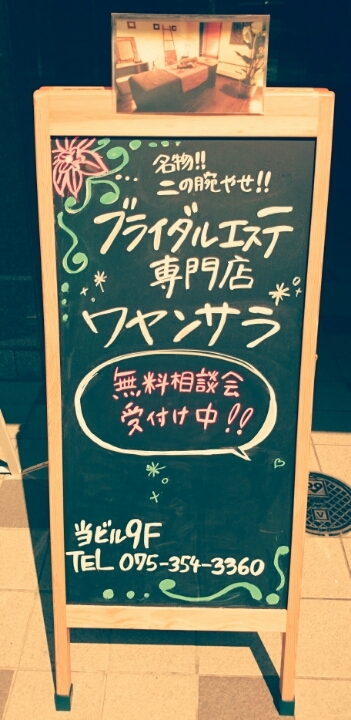 名物!!
二の腕やせ!!
ブライダルエステ
専門店
ワヤンサラ
無料相談会
受付け中!!
当ビル9F
TEL 075-354-3360